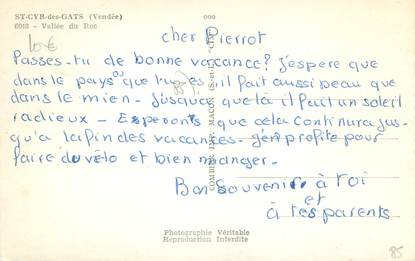 ST-CYR-des-GATS (Vendée)
6048 - Vallée du Roc
10€
cher Pierrot
Passes-tu de bonne vacance? j'espere que
dans le pays où que tu es il fait aussi beau que
dans le mien - jusque que là il fait un soleil
radieux - Esperons que cela continura jus-
qu'a la fin des vacances - j'en profite pour
faire du vélo et bien manger -
Bon souvenir à toi
et
à tes parents
COMBIER IMP. MACON
Photographie Véritable
Reproduction Interdite
85